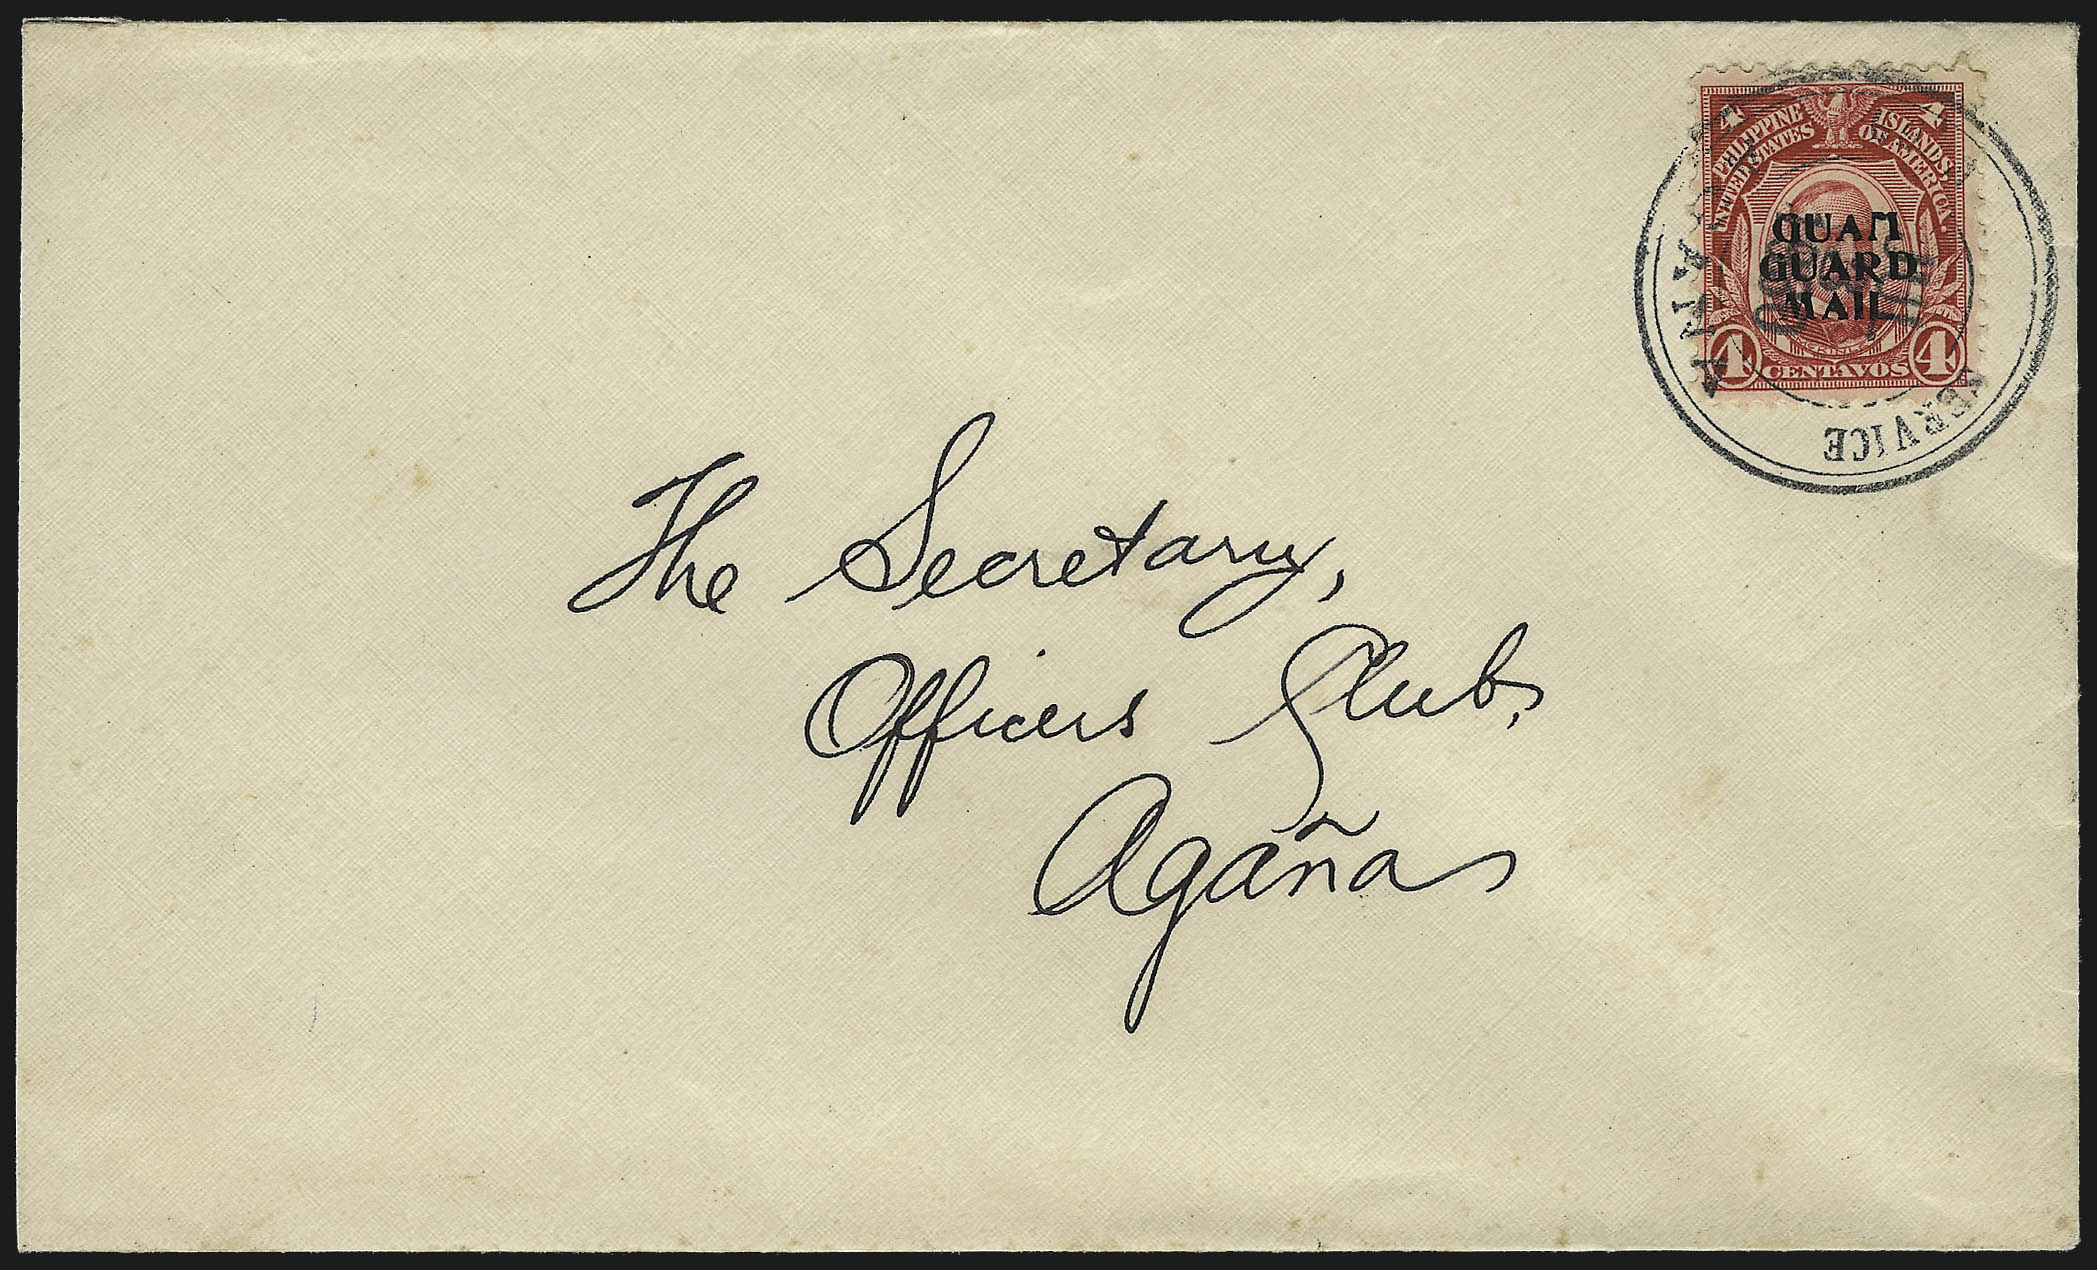 4 4
PHILIPPINE ISLANDS
UNITED STATES OF AMERICA
GUAM
GUARD
MAIL
4 CENTAVOS 4
SERVICE
The Secretary,
Officers Club,
Agaña